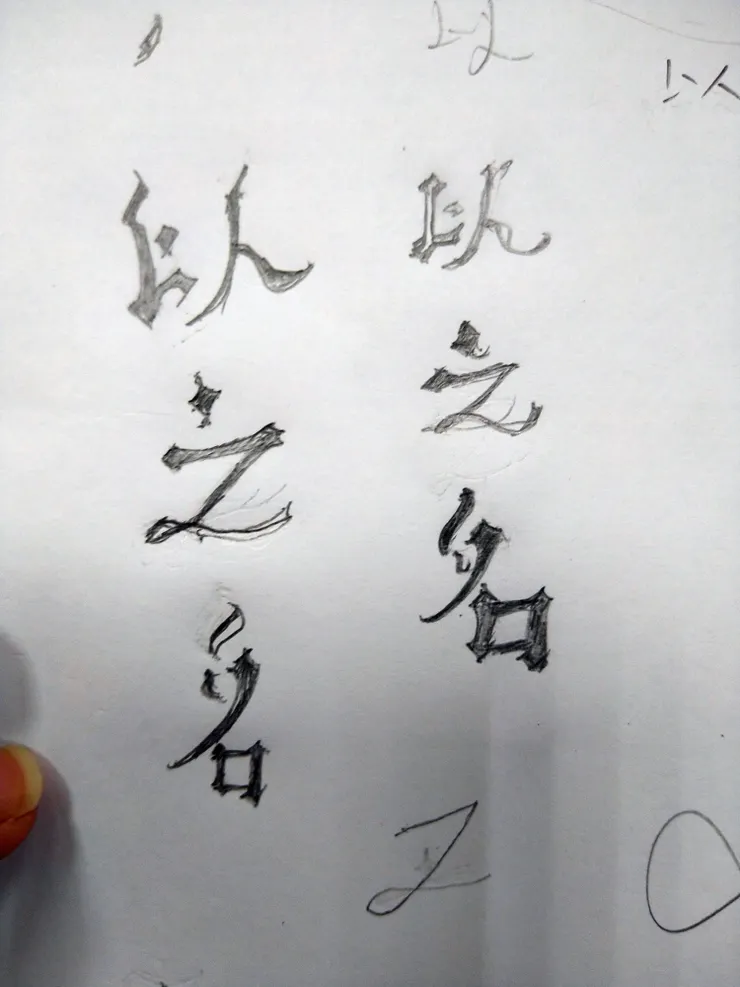 以之名
以之名
以
以